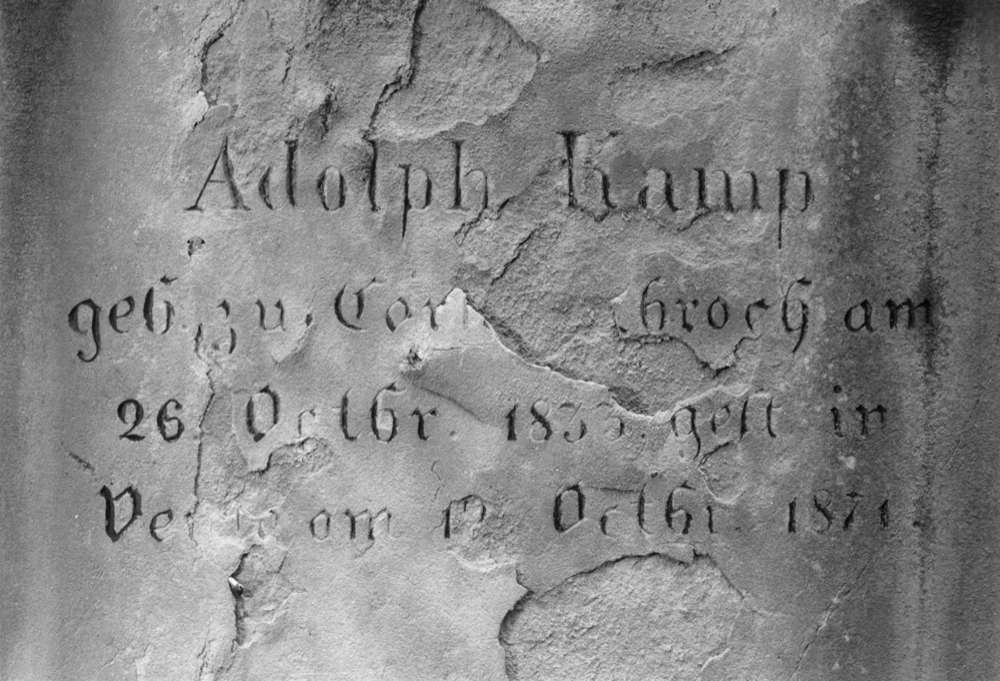 Adolph Kamp
geb. zu broch am
26. Octbr. gest in
am Octbr. 1871.